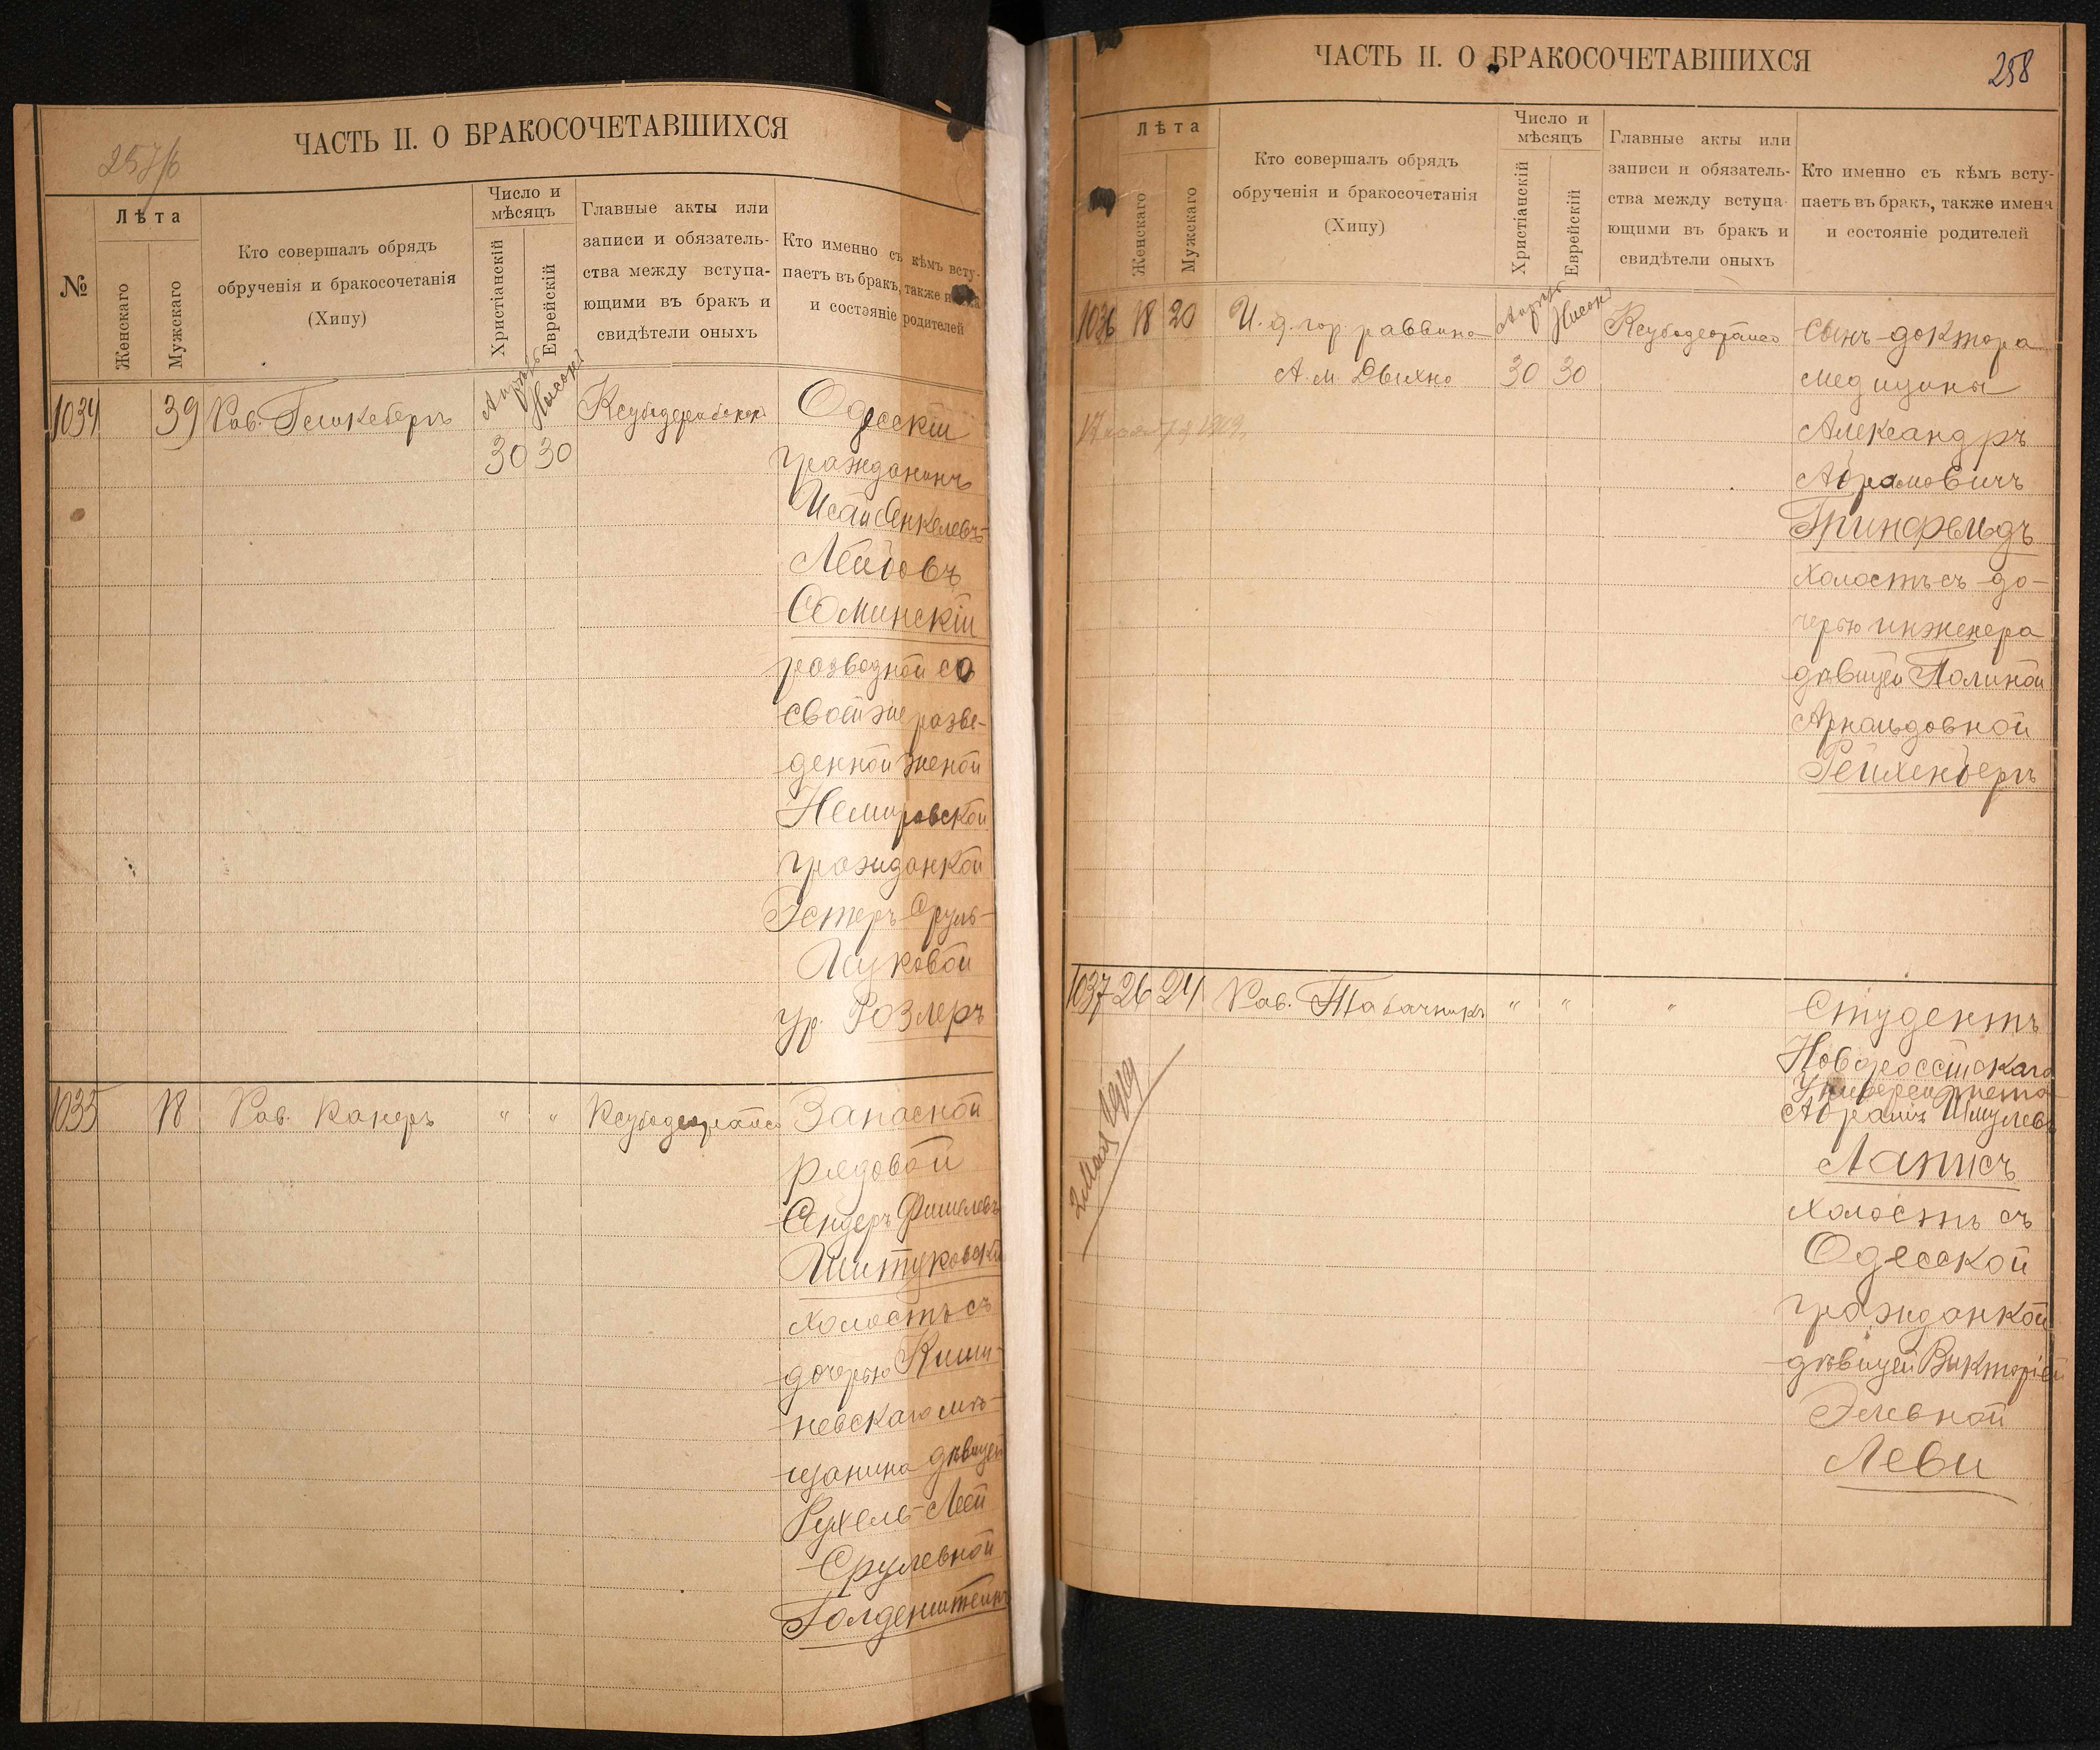 257/б
ЧАСТЬ II. О БРАКОСОЧЕТАВШИХСЯ
№
Лѣта
Женскаго
Мужскаго
Кто совершалъ обрядъ
обрученія и бракосочетанія
(Хипу)
Число и
мѣсяцъ
Христіанскій
Еврейскій
Главные акты или
записи и обязатель-
ства между вступа-
ющими въ бракъ и
свидѣтели оныхъ
Кто именно съ кѣмъ всту-
паетъ въ бракъ, также имена
и состояніе родителей
1034
39
Рав.
Апрѣль
Нисонъ
30 30
Одесскій
гражданинъ
Лейбовъ
Соминскій
разводной со
своей же разве-
денной женой
Немировской
гражданкой
Эстеръ Сруль-
Ицковой
ур. Розлеръ
1035
18
Рав. Канеръ
" "
Запасной
рядовой
Сендеръ Фишелевъ
Шитуковскій
холостъ съ
дочерью Киши-
невскаго мѣ-
щанина дѣвицей
Рухель-Леей
Срулевной
Голденштейнъ
ЧАСТЬ II. О БРАКОСОЧЕТАВШИХСЯ
258
Лѣта
Женскаго
Мужскаго
Кто совершалъ обрядъ
обрученія и бракосочетанія
(Хипу)
Число и
мѣсяцъ
Христіанскій
Еврейскій
Главные акты или
записи и обязатель-
ства между вступа-
ющими въ бракъ и
свидѣтели оныхъ
Кто именно съ кѣмъ всту-
паетъ въ бракъ, также имена
и состояніе родителей
1036 18 20
И. д. гор. раввина
А. М. Двихно
Апрѣль
Нисонъ
30 30
Сынъ доктора
медицины
Александръ
Абрамовичъ
Гринфельдъ
холостъ съ до-
черью инженера
дѣвицей Полиной
Арнольдовной
Рейхенбергъ
1037 26 24
Рав. Табачникъ
" " "
2 Мая 1919
Студентъ
Новороссійскаго
Университета
Абрамъ Шмулевъ
Лаписъ
холостъ съ
Одесской
гражданкой
дѣвицей Викторіей
Элевной
Леви